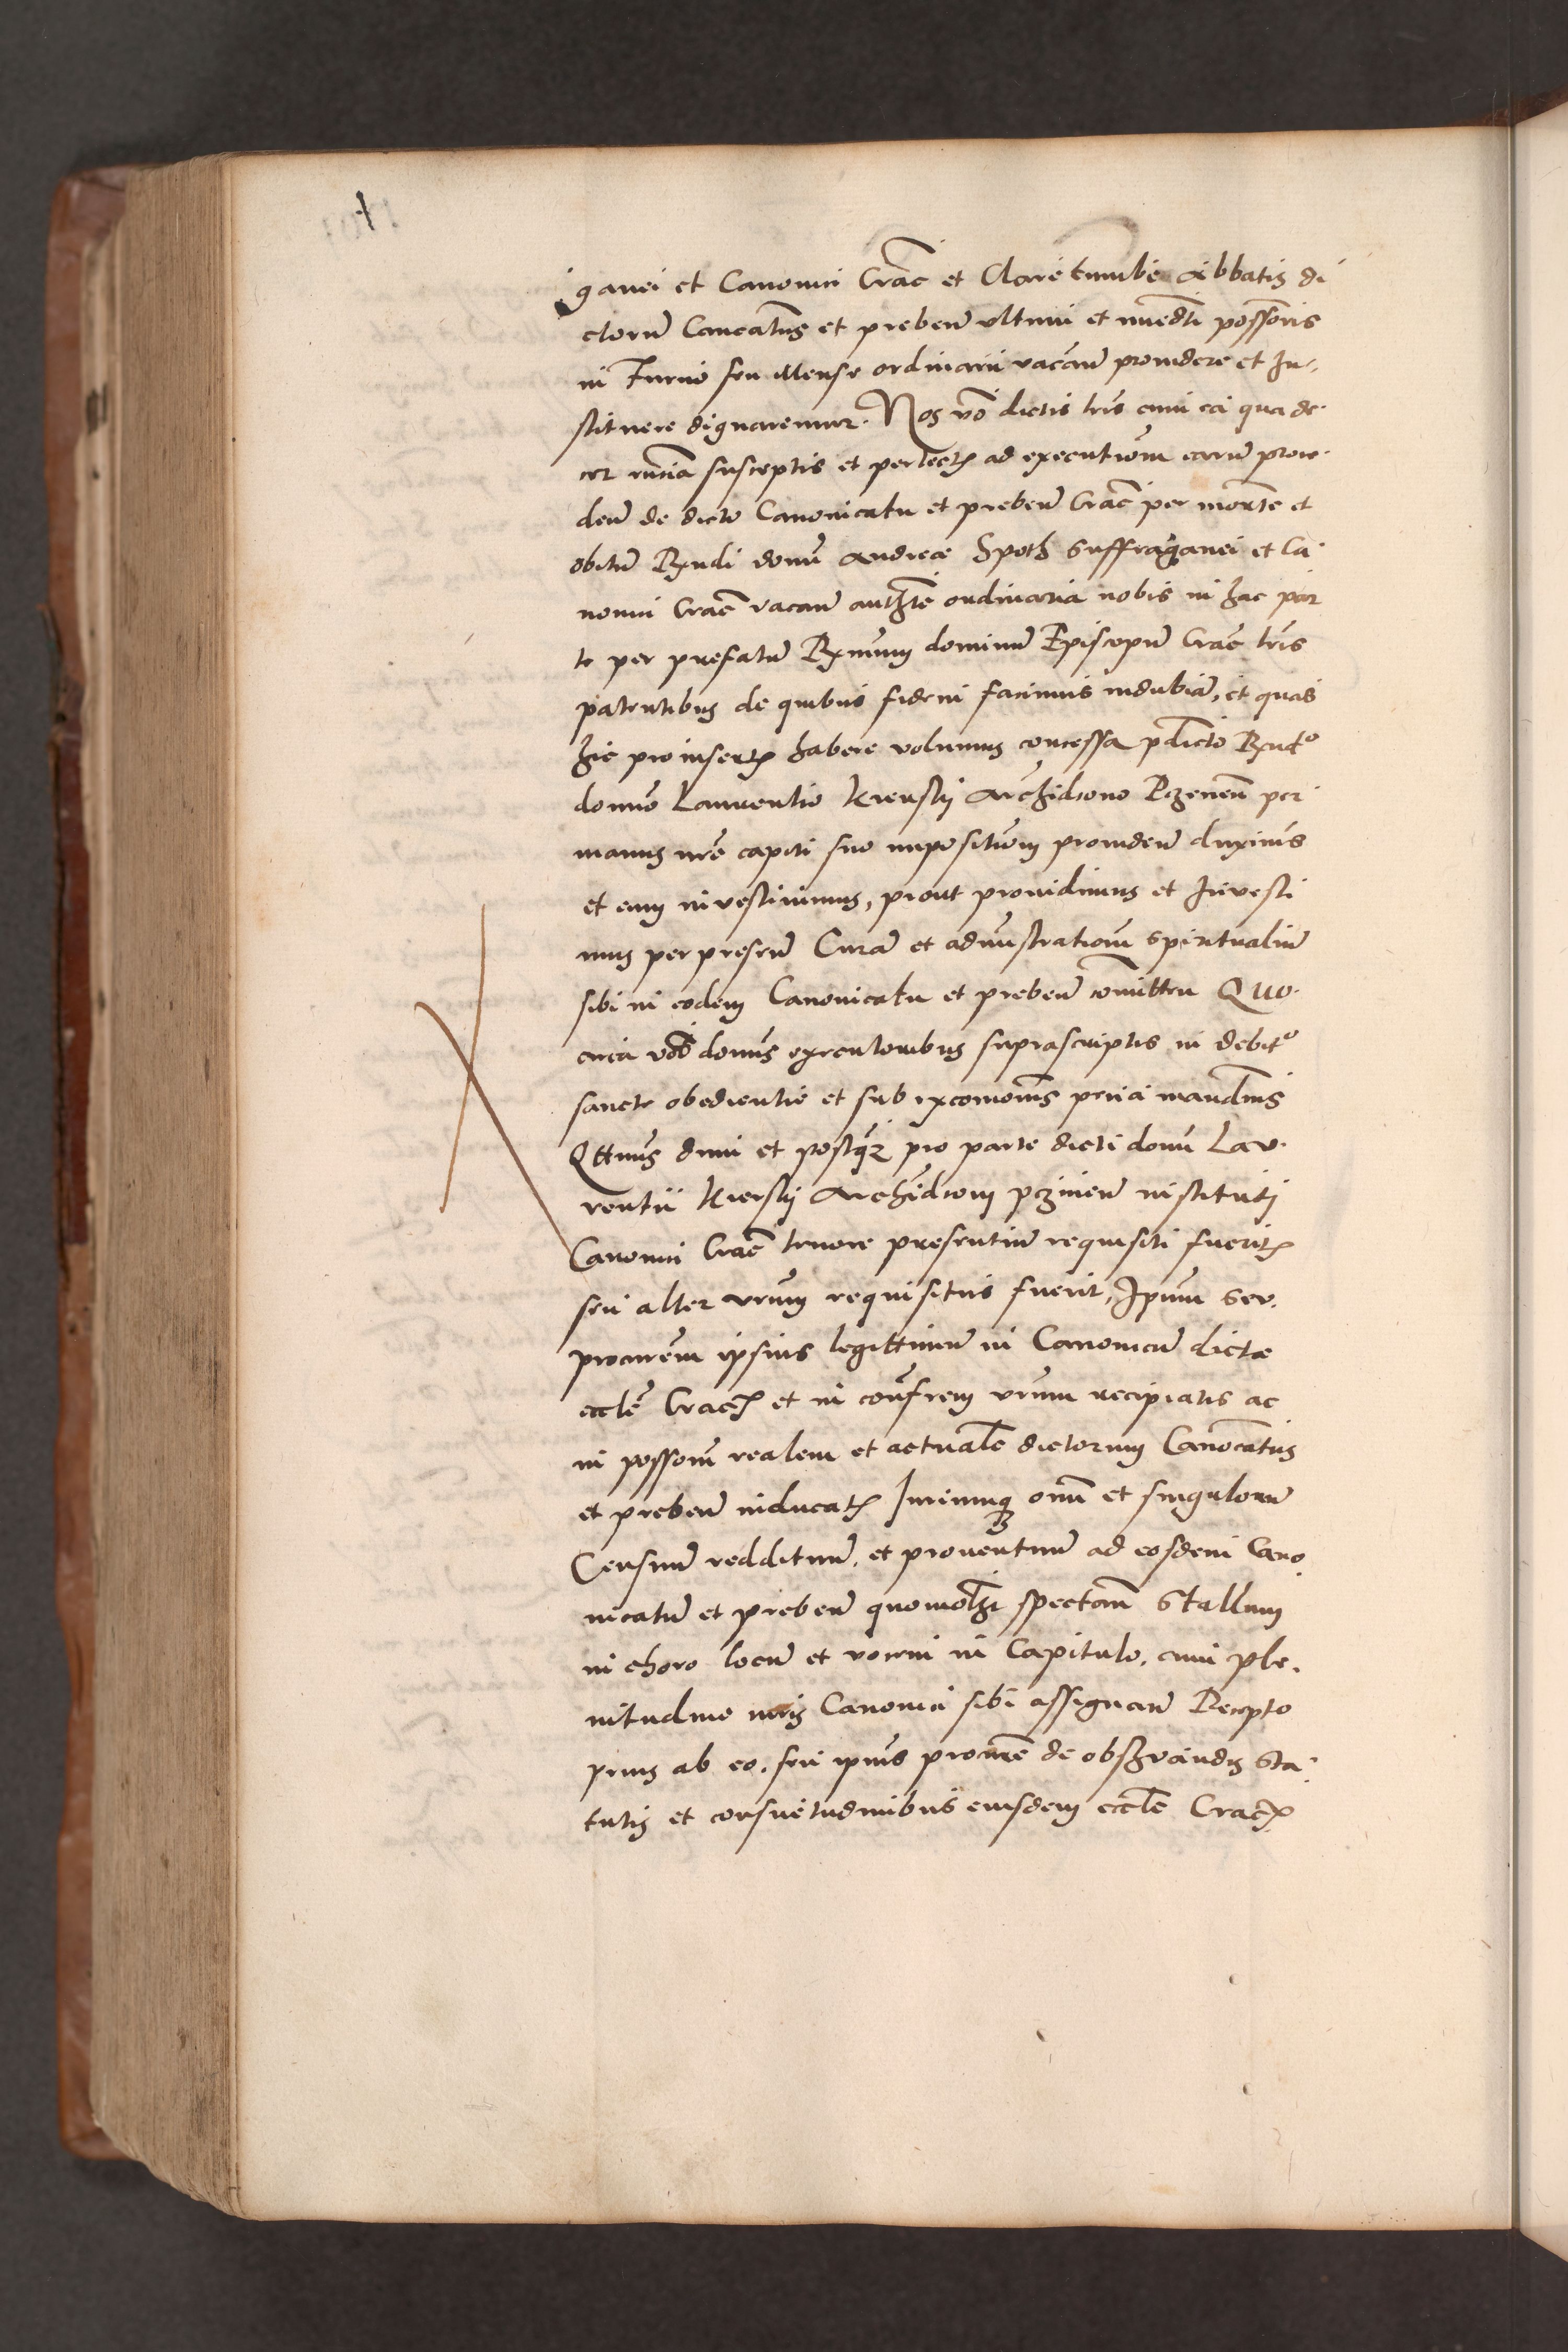 ganei et Canonici Crac̃ et Clare tumbe Abbatis di
ctorũ Canc̃atus et prebeñ ultimi et immẽdti possoris
in Turno seu Mense ordinarii vacañ providere et In-
stituere dignaremur. Nos võ dictis lr̃is cum ea qua de-
cet rũcia susceptis et perlectꝭ ad executionẽ earũ proce-
deñ de dicto Canonicatu et prebeñ Crac̃ per mortẽ et
obitũ Rx̃ndi dom̃ Andree Spoth Suffraganei et Ca-
nonici Crac̃ vacañ autht̃e ordinaria nobis in hac par
te per prefatũ Rx̃mum dominũ Episcopũ Crac̃ lr̃is
patentibus de quibus fidem facimus indubiã, et quas
hic pro insertꝭ habere volumus concessa pdicto Rx̃ndo
domño Laurentio Kierskij Archidiono Pzeneñ per
manus nr̃e capiti suo impositionẽ providenđ duximus
et eum investivimus, prout providimus et Investi
mus per preseñ Curã et admĩstrationẽ spiritualiũ
sibi in eodem Canonicatu et prebeñ com̃itteñ Quo-
circa vob̃ domĩs executoribus suprascriptis in debito
sancte obedientie et sub excomõnis pena mandm̃us
Qttnus dum et postq̃ꝫ pro parte dicti domĩ Lau-
rentii Kierskij Archidioni pzineñ instituti
Canonici Crac̃ tenore presentiũ requisiti fueritꝭ
seu alter vrũm requisitus fuerit, Ipum seu
procurẽm ipsius legittimũ in Canonicũ dicte
eccl̃e Cracꝭ et in conf̃rem vrum recipiatis ac
in possonẽ realem et actualẽ dictorum Canoc̃atus
et prebeñ inducatꝭ Iuriumqꝫ om̃ et singulorũ
Censuũ reddituũ, et proventuũ ad eosdem Cano
nicatũ et prebeñ quomolt̃ spectañ Stallum
in choro locũ et vocem in Capitulo, cum ple-
nitudine iuris Canonici sibi assignañ Recepto
prius ab eo, seu ipius procurẽ de observandis Sta-
tutis et consuetudinibus eiusdem eccl̃e Cracꝭ